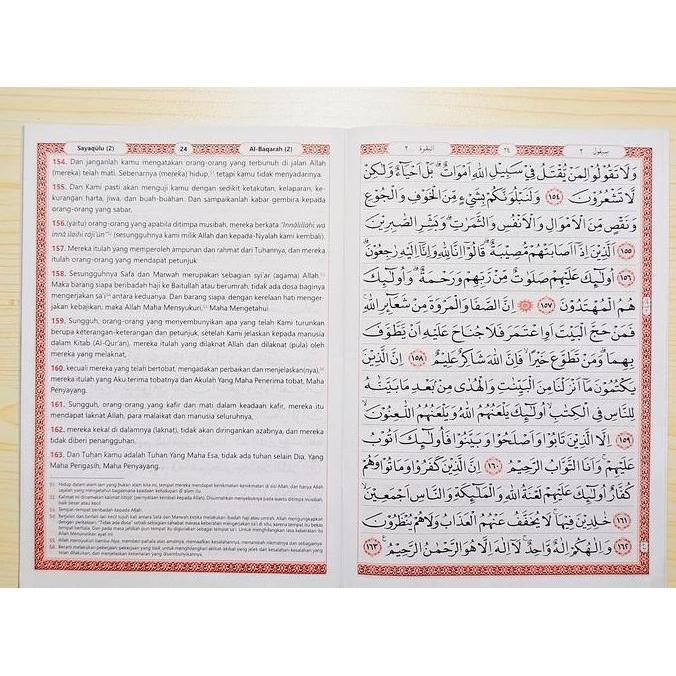 Sayaqūlu (2) 24 Al-Baqarah (2)
154. Dan janganlah kamu mengatakan orang-orang yang terbunuh di jalan Allah
(mereka) telah mati. Sebenarnya (mereka) hidup, tetapi kamu tidak menyadarinya.
155. Dan Kami pasti akan menguji kamu dengan sedikit ketakutan, kelaparan, ke-
kurangan harta, jiwa, dan buah-buahan. Dan sampaikanlah kabar gembira kepada
orang-orang yang sabar,
156.(yaitu) orang-orang yang apabila ditimpa musibah, mereka berkata "Innālillāhi wa
innā ilaihi rāji'ūn" (sesungguhnya kami milik Allah dan kepada-Nyalah kami kembali).
157. Mereka itulah yang memperoleh ampunan dan rahmat dari Tuhannya, dan mereka
itulah orang-orang yang mendapat petunjuk.
158. Sesungguhnya Safa dan Marwah merupakan sebagian syi'ar (agama) Allah.
Maka barang siapa beribadah haji ke Baitullah atau berumrah, tidak ada dosa baginya
mengerjakan sa'i antara keduanya. Dan barang siapa dengan kerelaan hati menger-
jakan kebajikan, maka Allah Maha Mensyukuri, Maha Mengetahui.
159. Sungguh, orang-orang yang menyembunyikan apa yang telah Kami turunkan
berupa keterangan-keterangan dan petunjuk, setelah Kami jelaskan kepada manusia
dalam Kitab (Al-Qur'an), mereka itulah yang dilaknat Allah dan dilaknat (pula) oleh
mereka yang melaknat,
160. kecuali mereka yang telah bertobat, mengadakan perbaikan dan menjelaskan(nya),
mereka itulah yang Aku terima tobatnya dan Akulah Yang Maha Penerima tobat, Maha
Penyayang.
161. Sungguh, orang-orang yang kafir dan mati dalam keadaan kafir, mereka itu
mendapat laknat Allah, para malaikat dan manusia seluruhnya,
162. mereka kekal di dalamnya (laknat), tidak akan diringankan azabnya, dan mereka
tidak diberi penangguhan.
163. Dan Tuhan kamu adalah Tuhan Yang Maha Esa, tidak ada tuhan selain Dia, Yang
Maha Pengasih, Maha Penyayang.
البقرة ٢ ٢٤ سيقول ٢
وَلَا تَقُوْلُوْا لِمَنْ يُّقْتَلُ فِيْ سَبِيْلِ اللّٰهِ اَمْوَاتٌ ۗ بَلْ اَحْيَاۤءٌ وَّلٰكِنْ
لَّا تَشْعُرُوْنَ ١٥٤ وَلَنَبْلُوَنَّكُمْ بِشَيْءٍ مِّنَ الْخَوْفِ وَالْجُوْعِ
وَنَقْصٍ مِّنَ الْاَمْوَالِ وَالْاَنْفُسِ وَالثَّمَرٰتِۗ وَبَشِّرِ الصّٰبِرِيْنَ
١٥٥ اَلَّذِيْنَ اِذَآ اَصَابَتْهُمْ مُّصِيْبَةٌ ۗ قَالُوْٓا اِنَّا لِلّٰهِ وَاِنَّآ اِلَيْهِ رٰجِعُوْنَۗ
١٥٦ اُولٰۤىِٕكَ عَلَيْهِمْ صَلَوٰتٌ مِّنْ رَّبِّهِمْ وَرَحْمَةٌ ۗ وَاُولٰۤىِٕكَ
هُمُ الْمُهْتَدُوْنَ ١٥٧ اِنَّ الصَّفَا وَالْمَرْوَةَ مِنْ شَعَاۤىِٕرِ اللّٰهِ
فَمَنْ حَجَّ الْبَيْتَ اَوِ اعْتَمَرَ فَلَا جُنَاحَ عَلَيْهِ اَنْ يَّطَّوَّفَ
بِهِمَا ۗ وَمَنْ تَطَوَّعَ خَيْرًاۙ فَاِنَّ اللّٰهَ شَاكِرٌ عَلِيْمٌ ١٥٨ اِنَّ الَّذِيْنَ
يَكْتُمُوْنَ مَآ اَنْزَلْنَا مِنَ الْبَيِّنٰتِ وَالْهُدٰى مِنْۢ بَعْدِ مَا بَيَّنّٰهُ
لِلنَّاسِ فِى الْكِتٰبِۙ اُولٰۤىِٕكَ يَلْعَنُهُمُ اللّٰهُ وَيَلْعَنُهُمُ اللّٰعِنُوْنَۙ
١٥٩ اِلَّا الَّذِيْنَ تَابُوْا وَاَصْلَحُوْا وَبَيَّنُوْا فَاُولٰۤىِٕكَ اَتُوْبُ
عَلَيْهِمْ ۚ وَاَنَا التَّوَّابُ الرَّحِيْمُ ١٦٠ اِنَّ الَّذِيْنَ كَفَرُوْا وَمَاتُوْا وَهُمْ
كُفَّارٌ اُولٰۤىِٕكَ عَلَيْهِمْ لَعْنَةُ اللّٰهِ وَالْمَلٰۤىِٕكَةِ وَالنَّاسِ اَجْمَعِيْنَۙ
١٦١ خٰلِدِيْنَ فِيْهَا ۚ لَا يُخَفَّفُ عَنْهُمُ الْعَذَابُ وَلَا هُمْ يُنْظَرُوْنَ
١٦٢ وَاِلٰهُكُمْ اِلٰهٌ وَّاحِدٌۚ لَآ اِلٰهَ اِلَّا هُوَ الرَّحْمٰنُ الرَّحِيْمُ ١٦٣